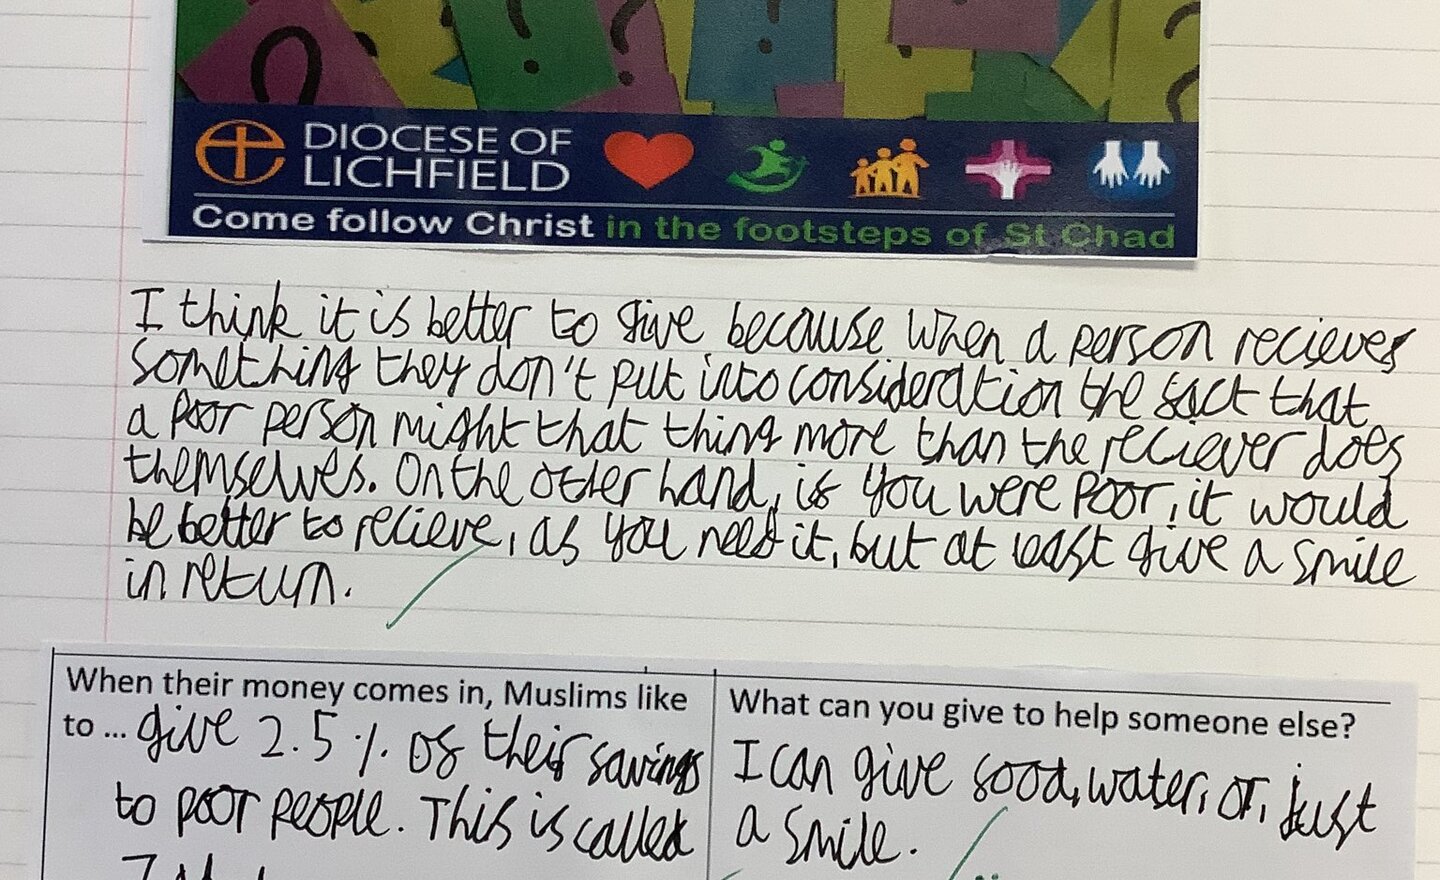 DIOCESE OF
LICHFIELD
Come follow Christ in the footsteps of St Chad
I think it is better to give because when a person recieves
something they don't put into consideration the fact that
a poor person might that thing more than the reciever does
themselves. On the other hand, if you were poor, it would
be better to recieve, as you need it, but at least give a smile
in return.
When their money comes in, Muslims like
to ... give 2.5% of their savings
to poor people. This is called
What can you give to help someone else?
I can give food, water, or, just
a smile.